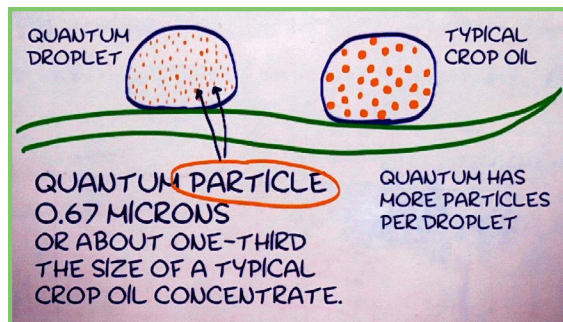 QUANTUM
DROPLET
TYPICAL
CROP OIL
QUANTUM PARTICLE
0.67 MICRONS
OR ABOUT ONE-THIRD
THE SIZE OF A TYPICAL
CROP OIL CONCENTRATE.
QUANTUM HAS
MORE PARTICLES
PER DROPLET